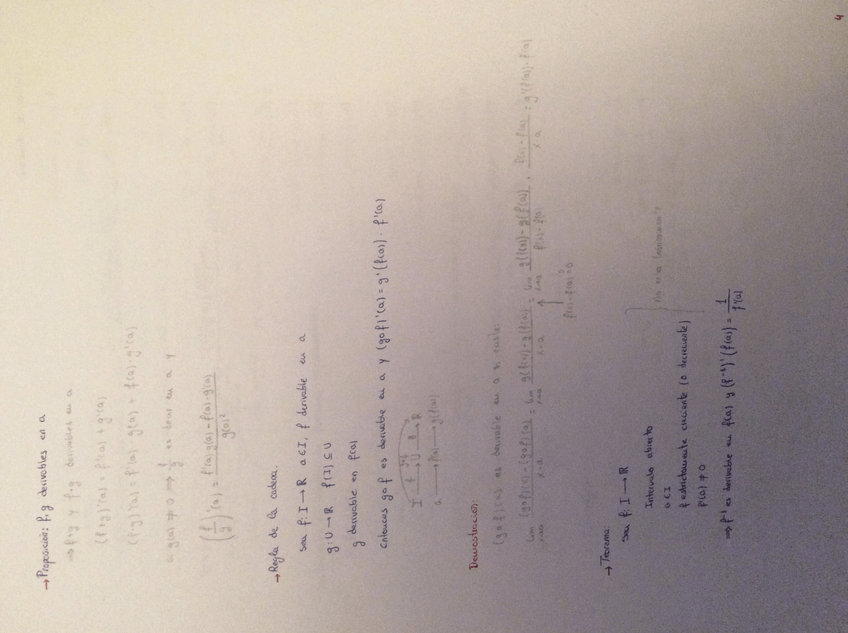 → Proposición: f, g derivables en a
⇒ f+g y f·g derivables en a
(f+g)'(a) = f'(a) + g'(a)
(f·g)'(a) = f'(a) · g(a) + f(a) · g'(a)
g(a) ≠ 0 ⇒ f/g es en a y
(f/g)'(a) = (f'(a)·g(a) - f(a)·g'(a)) / g(a)²
→ Regla de la cadena.
Sea f: I → R a ∈ I, f derivable en a
g: U → R f(I) ⊆ U
g derivable en f(a)
Entonces g∘f es derivable en a y (g∘f)'(a) = g'(f(a)) · f'(a)
I → U → R
a → f(a) → g(f(a))
Demostración:
(g∘f)(x) es derivable en a si existe:
lim x→a ((g∘f)(x) - (g∘f)(a)) / (x-a) = lim x→a (g(f(x)) - g(f(a))) / (x-a) = lim x→a (g(f(x)) - g(f(a))) / (f(x) - f(a)) · (f(x) - f(a)) / (x-a) = g'(f(a)) · f'(a)
f(x) - f(a) ≠ 0
→ Teorema:
Sea f: I → R
Intervalo abierto
a ∈ I
f estrictamente creciente (o decreciente)
f'(a) ≠ 0
⇒ f⁻¹ es derivable en f(a) y (f⁻¹)'(f(a)) = 1 / f'(a)
4